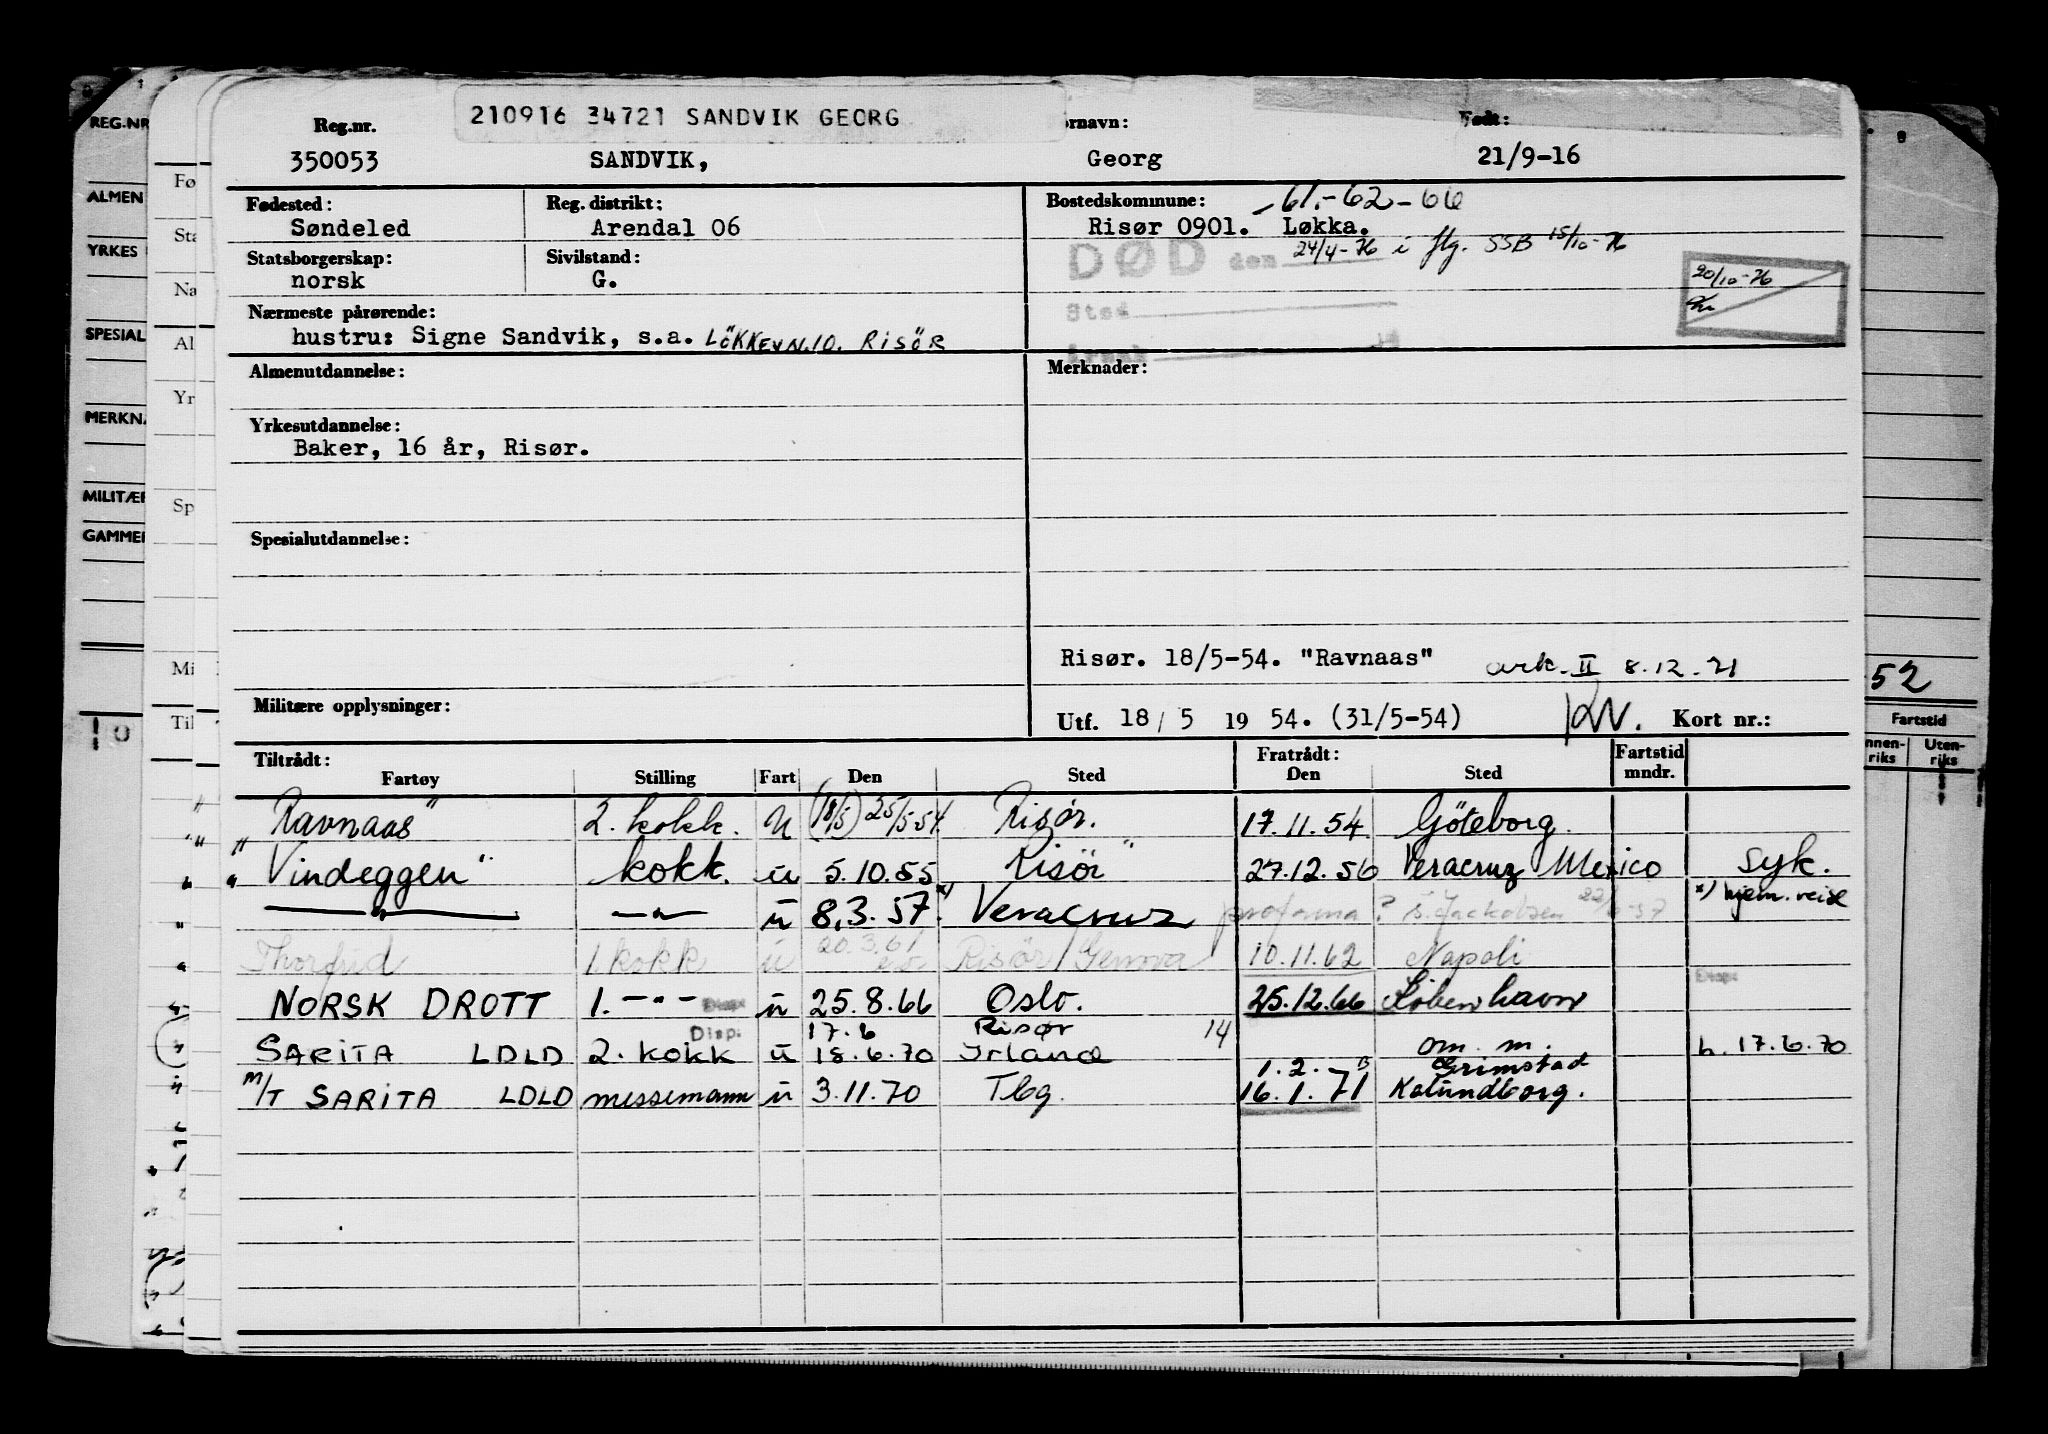 210916 34721 SANDVIK GEORG
Reg.nr. ornavn: Født:
350053 SANDVIK, Georg 21/9-16
Fødested: Reg. distrikt: Bostedskommune: 61.-62-66
Søndeled Arendal 06 Risør 0901. Løkka.
DØD den 24/4-76 i flg. SSB 15/10-76
Statsborgerskap: Sivilstand:
norsk G.
20/10-76
Sted
Nærmeste pårørende:
hustru: Signe Sandvik, s.a. LÖKKEVN.10. RISÖR
Almenutdannelse: Merknader:
Yrkesutdannelse:
Baker, 16 år, Risør.
Spesialutdannelse:
Risør. 18/5-54. "Ravnaas" ark. II 8.12.71
Militære opplysninger:
Utf. 18/5 19 54. (31/5-54) Kort nr.:
Tiltrådt: Fratrådt: Fartstid
Fartøy Stilling Fart Den Sted Den Sted mndr.
"Ravnaas" 2. kokk. u (18/5) 25/5 54 Risør. 17.11.54 Göteborg.
"Vindeggen" kokk. u 5.10.55 Risör 27.12.56 Veracruz Mexico syk.
—"— —"— u 8.3.57 x) Veracruz proforma ? x) hjem.reise
Thorfrid 1. kokk u 20.3.61 Risör/Genova 10.11.62 Napoli
Disp.
NORSK DROTT 1. -"- Disp. u 25.8.66 Oslo. 25.12.66 København
Disp. 17.6 Risør 14
SARITA LDLD 2. kokk u 18.6.70 Irland om. m. h. 17.6.70
1.2.- Grimstad
M/T SARITA LDLD messemann u 3.11.70 Tbg. 16.1.71 Kalundborg.
REG.NR
ALMEN
YRKES
SPESIAL
MERKNA
MILITÆR
GAMMEL
Fø
Sta
Na
Al
Yr
Sp
Mi
Til
52
Fartstid
nnen-
riks
Uten-
riks